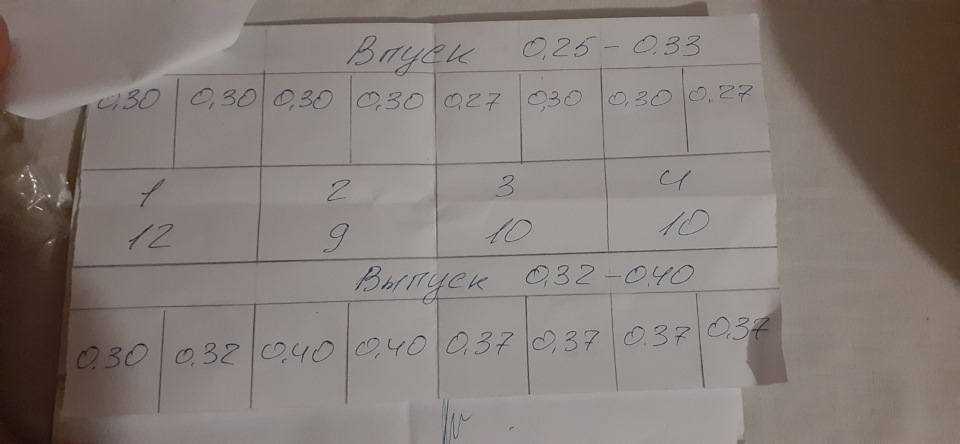 Впуск 0,25-0,33
0,30 0,30 0,30 0,30 0,27 0,30 0,30 0,27
1 2 3 4
12 9 10 10
Выпуск 0,32-0,40
0.30 0.32 0,40 0,40 0,37 0,37 0.37 0,37